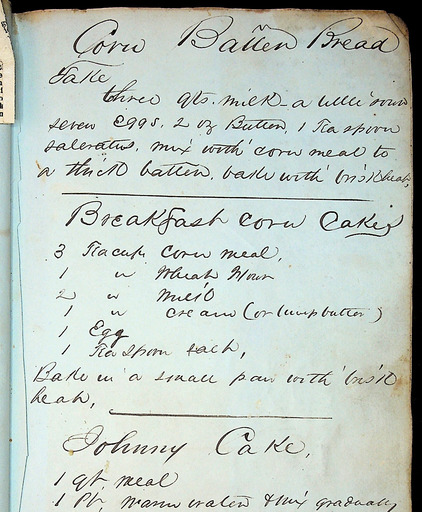 Corn Batten Bread
Take
three qts. milk a little sour
seven Eggs. 2 oz Butter. 1 Tea spoon
saleratus. mix with corn meal to
a thick batter. bake with brisk heat,
Breakfast corn Cakes
3 Teacups corn meal,
1 " Wheat flour
2 " milk
1 " cream (or lump butter)
1 Egg
1 Tea spoon each,
Bake in a small pan with brisk
heat,
Johnny Cake,
1 qt. meal
1 pt. warm water & mix gradually